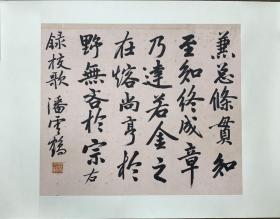 兼总條貫知
至知終成章
乃達若金之
在熔尚亨於
野無吝於宗右
録校歌潘雲鶴